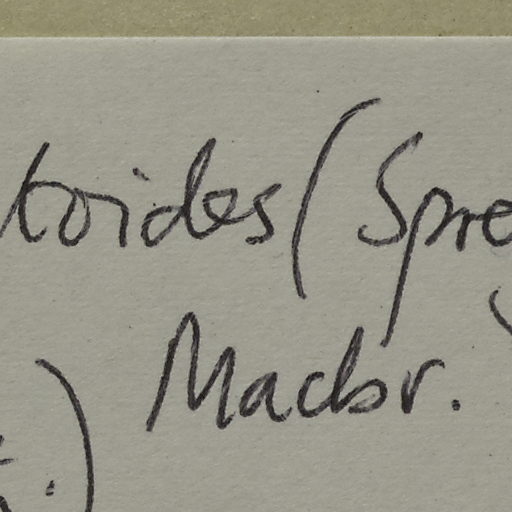 toides (Spre
Macbr.
.)